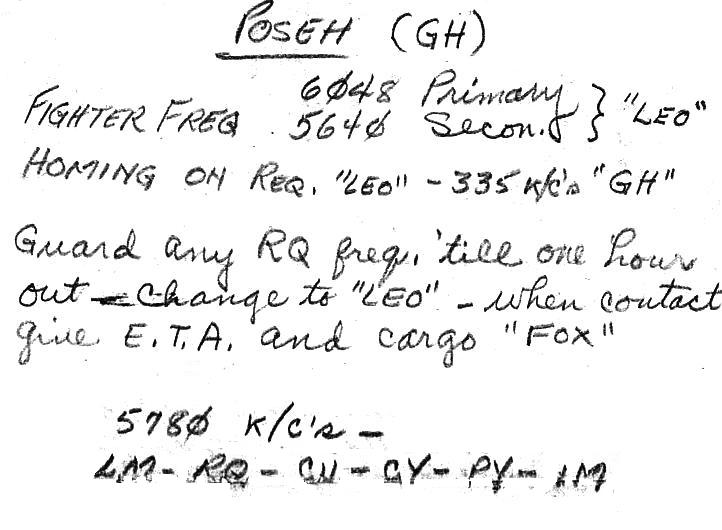 POSEH (GH)
FIGHTER FREQ. 6Ø48 Primary } "LEO"
564Ø Secon.
HOMING ON REQ. "LEO" - 335 K/C's "GH"
Guard any RQ freq. 'till one hour
out - Change to "LEO" - when contact
give E.T.A. and cargo "FOX"
578Ø K/C's -
LM - RQ - CU - GY - PY -